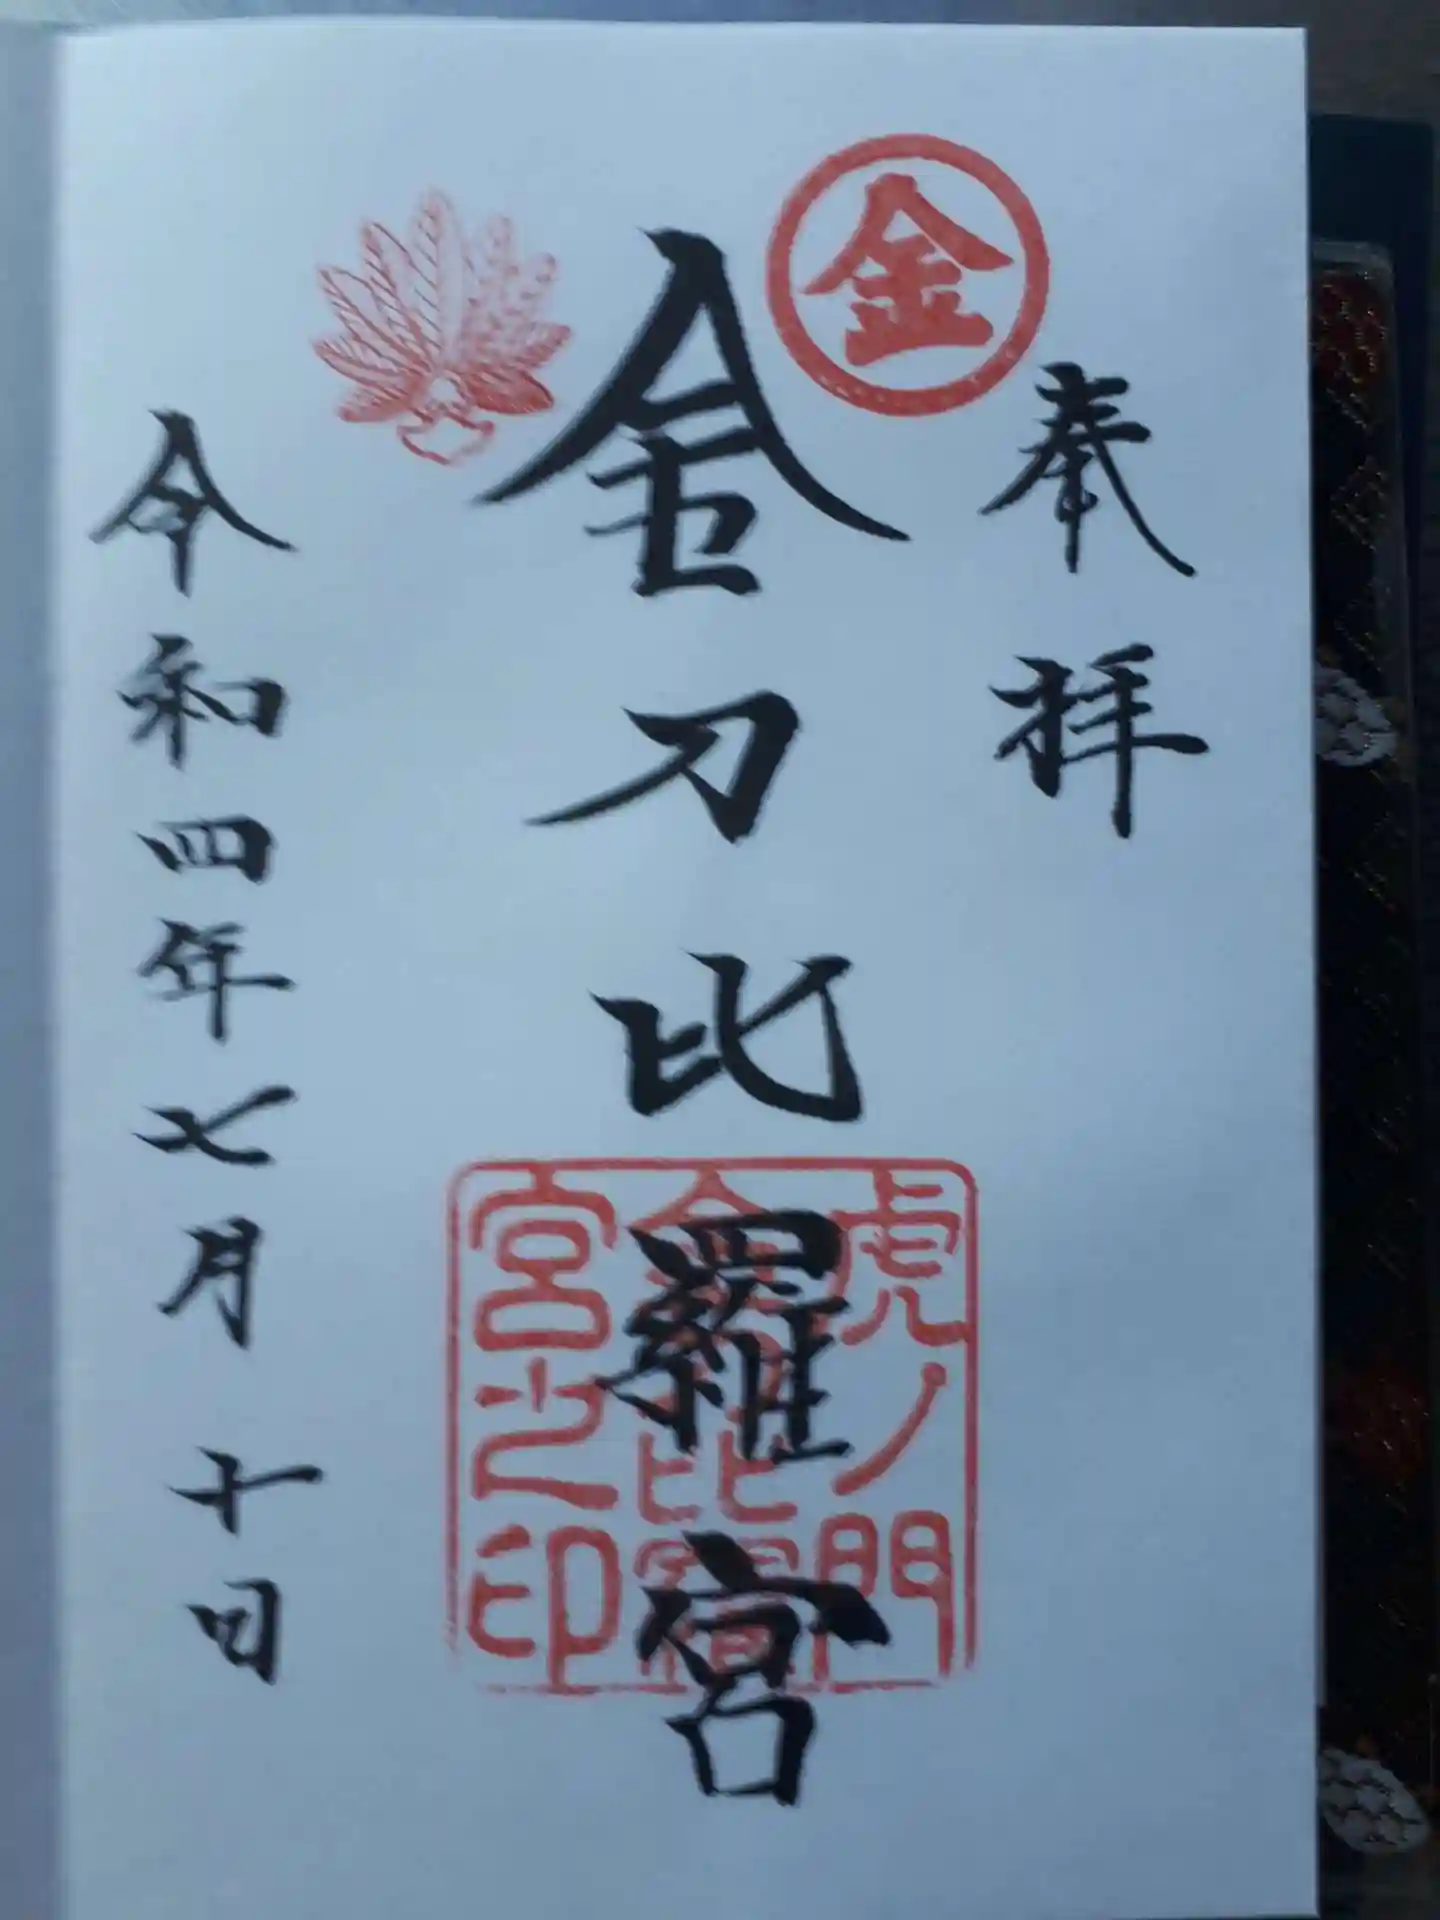 奉拝
金
金刀比羅宮
虎ノ門
金刀比羅
宮之印
令和四年七月十日